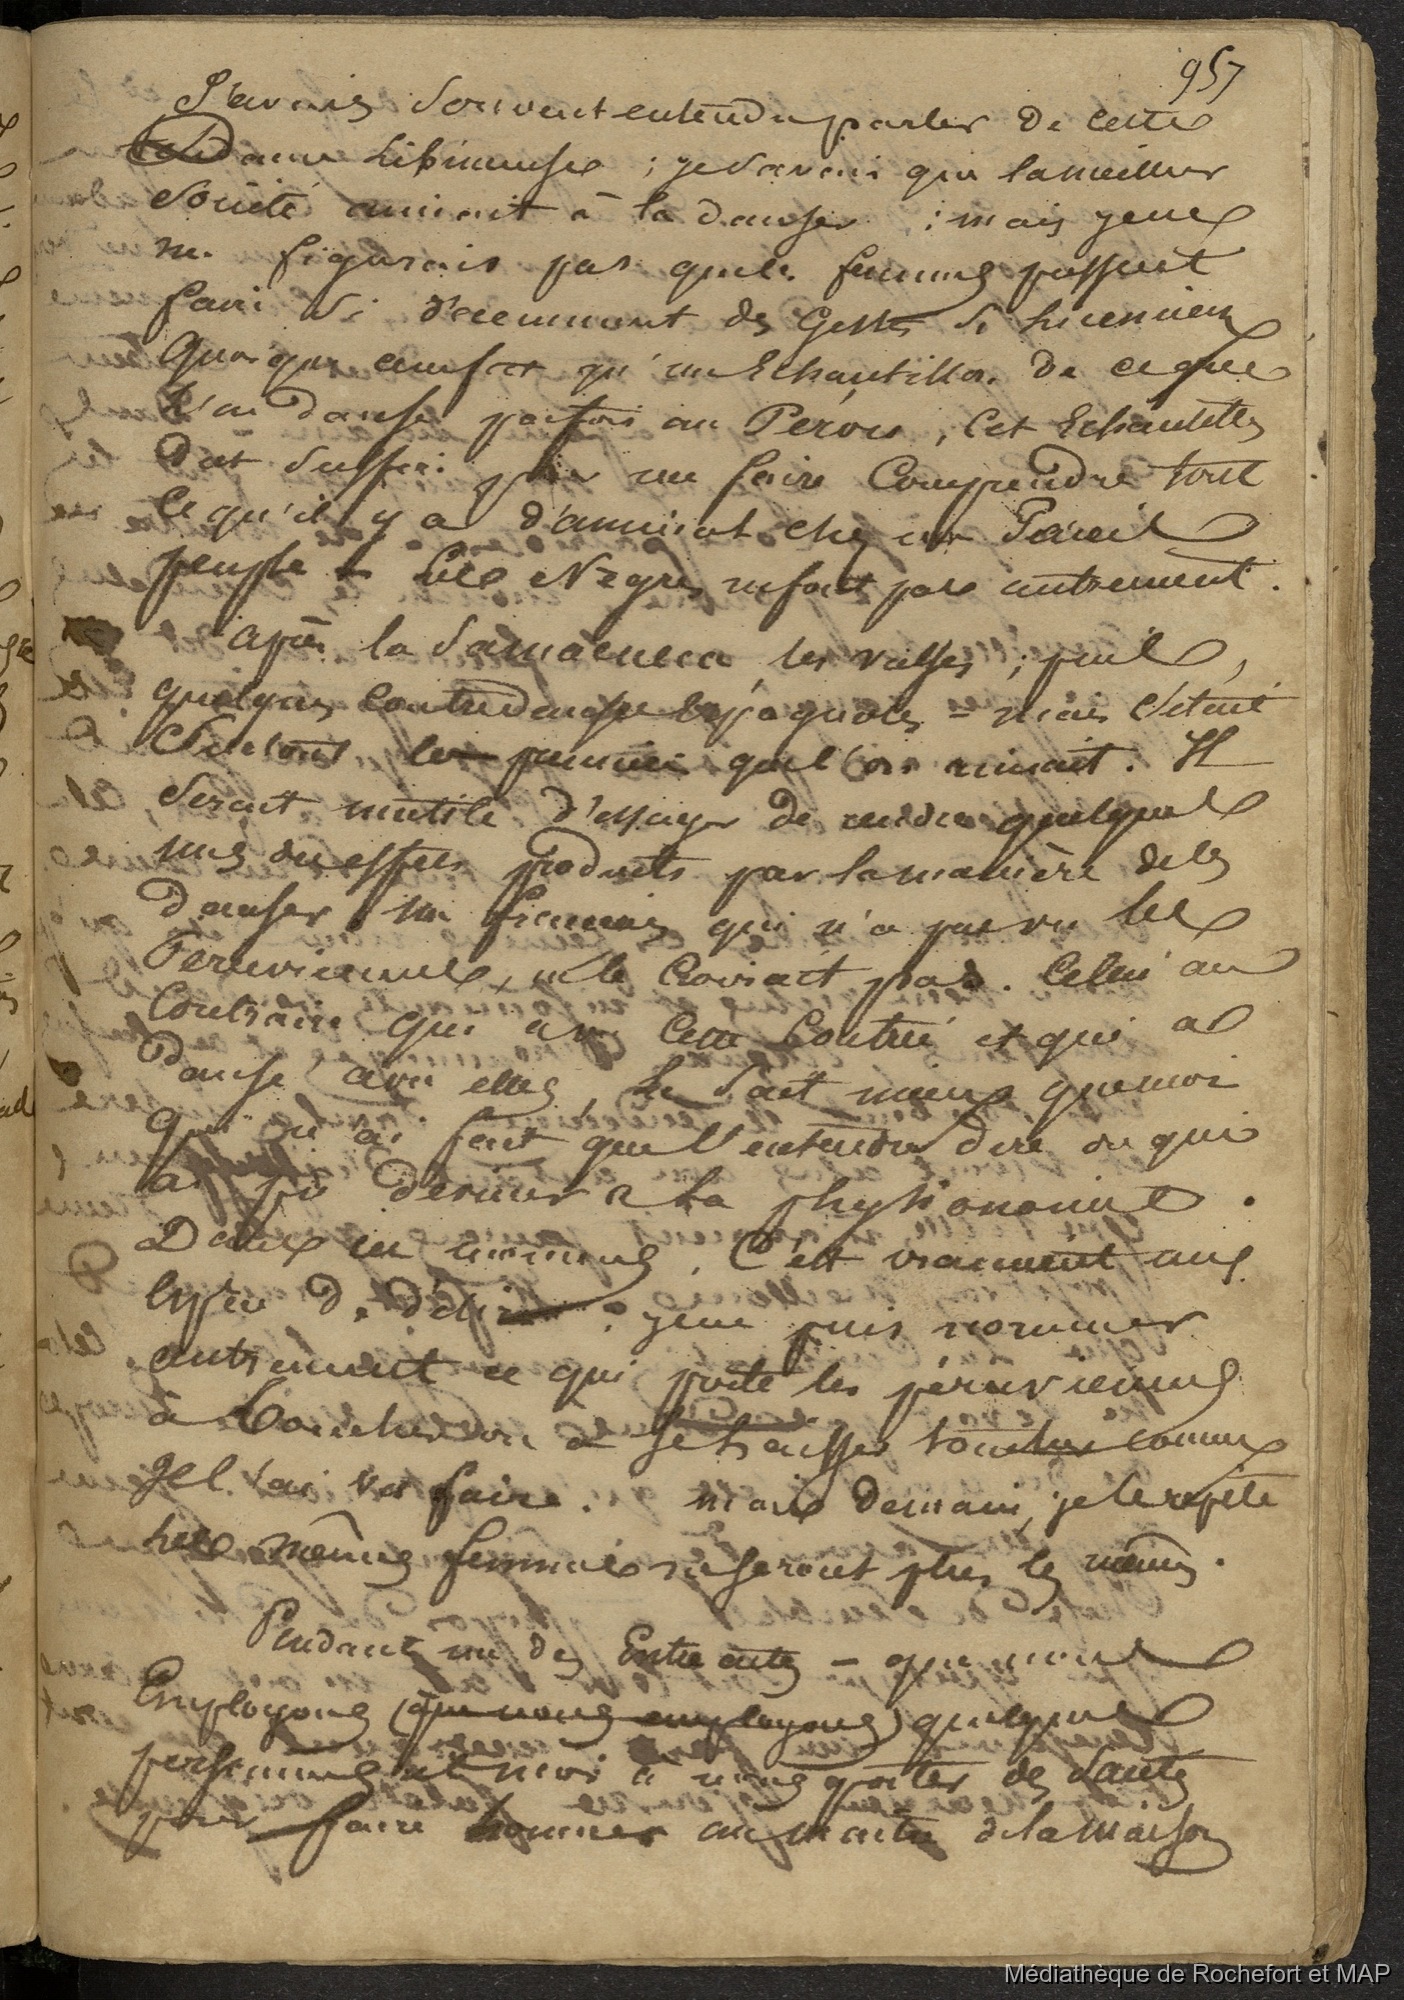 957
J'avais souvent entendu parler de cette
danse libineuse ; je savais que la meilleur
société aimait à la danser ; mais je ne
me figurais pas que les femmes pussent
faire si décemment des gestes si
quoique ce ne fut qu'un Echantillon de ce que
l'on danse parfois au Pérou, cet Echantillon
dut suffir pour me faire comprendre tout
ce qu'il y a d'animal chez un Pareil
peuple = Les Nègres ne font pas autrement.
après la Samacueca, les valses ; puis,
quelques contredanses Espagnoles = mais c'était
surtout les premières que l'on aimait. Il
serait inutile d'essayer de rendre quelques
uns des effets produits par la manière de les
danser. Un français qui n'a pas vu les
Peruviennes, ne le croirait pas. Celui au
contraire qui a vu cette contrée et qui a
dansé avec elles, le sait mieux que moi
qui n'ai fait que l'entendre dire ou qui
ai pu deviner à la physionomie.
Dans ces moments, C'est vraiment une
Espèce de délire : je ne puis nommer
autrement ce qui porte les péruviennes
à toucher ou à se laisser toucher comme
je l'ai vu faire. mais demain, je le répète
les mêmes femmes ne seront plus les mêmes.
Pendant un des Entre actes = que nous
Employons (que nous employons) quelques
personnes et moi à nous porter des santés
pour faire honneur au maitre de la maison
Médiathèque de Rochefort et MAP